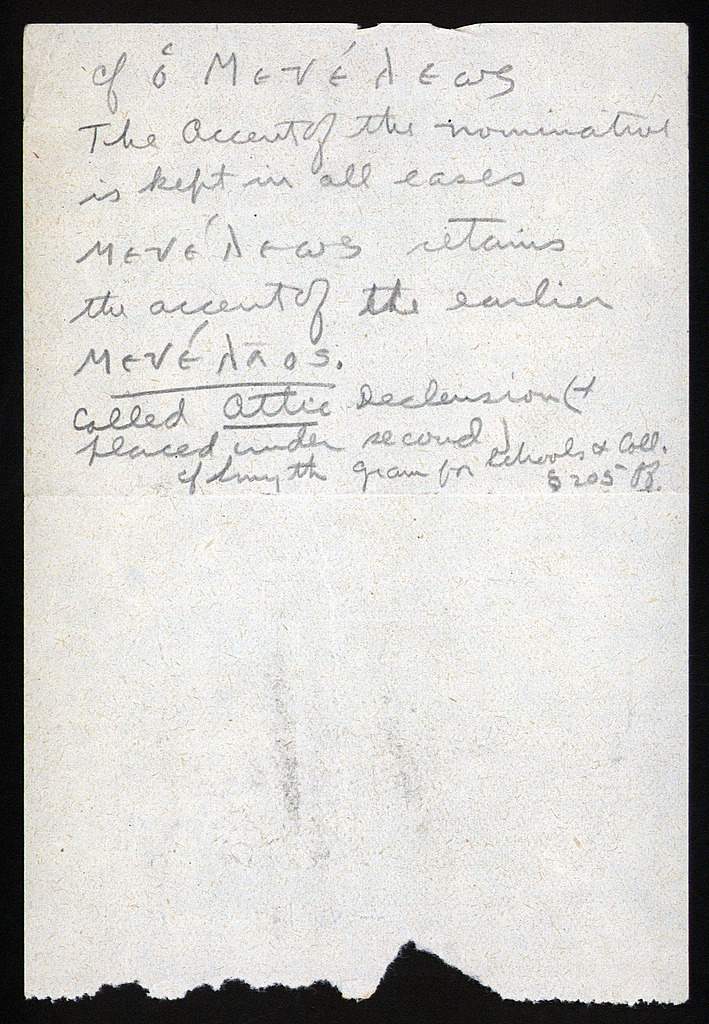 cf ὁ Μενέλεως
The accent of the nominative
is kept in all cases
Μενέλεως retains
the accent of the earlier
Μενέλᾱος.
Called Attic Declension (&
placed under second)
cf Smyth Gram for Schools & Coll.
§ 205 ff.